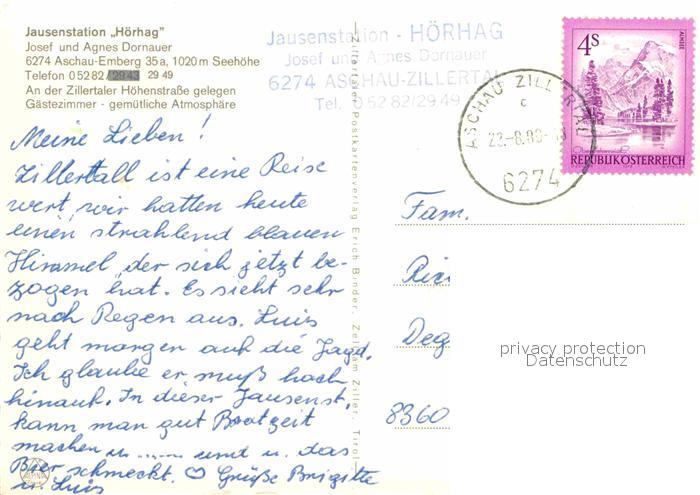 Jausenstation „Hörhag"
Josef und Agnes Dornauer
6274 Aschau-Emberg 35a, 1020 m Seehöhe
Telefon 0 52 82 / 29 43 29 49
An der Zillertaler Höhenstraße gelegen
Gästezimmer - gemütliche Atmosphäre
Jausenstation - HÖRHAG
Josef und Agnes Dornauer
6274 ASCHAU-ZILLERTAL
Tel. 0 52 82/29 49
4s
ALMSEE
REPUBLIK ÖSTERREICH
ASCHAU ZILLERTAL
c
22.-8.80-
6274
Meine Lieben!
Zillertall ist eine Reise
wert, wir hatten heute
einen strahlend blauen
Himmel, der sich jetzt be-
zogen hat. Es sieht sehr
nach Regen aus. Luis
geht morgen auf die Jagd.
Ich glaube er muß hoch
hinauf. In dieser Jausenst.
kann man gut Brotzeit
machen u. ...... und u. das
Bier schmeckt. ♡ Grüße Brigitte
u. Luis
Zillertaler Postkartenverlag Erich Binder, Zell am Ziller, Tirol.
Fam.
Deg
8360
privacy protection
Datenschutz